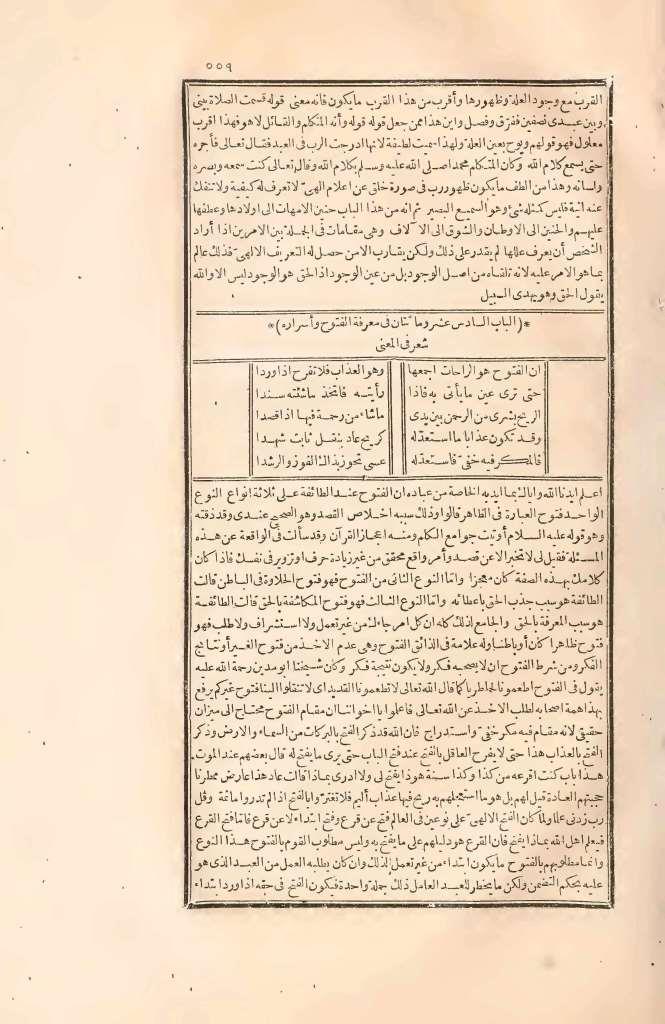 ٥٥٩
القرب مع وجود العلة وظهورها وأقرب من هذا القرب ما يكون فانه معنى قوله قسمت الصلاة بيني
وبين عبدي نصفين ففرّق وفصل وأين هذا ممن جعل قوله قوله وأنه المتكلم والقائل لا هو فهذا أقرب
معلول فهو قولهم ويوح بعين العلة ولهذا سميت لطيفة لانها ادرجت الرب في العبد فقال تعالى فأجره
حتى يسمع كلام الله وكان المتكلم محمدا صلى الله عليه وسلم بكلام الله وقال تعالى كنت سمعه وبصره
ولسانه وهذا من الطف ما يكون ظهور رب في صورة خلق عن اعلام الهيّ لا تعرف له كيفية ولا تنفك
عنه انية فليس كمثله شئ وهو السميع البصير ثم انه من هذا الباب حنين الامهات الى اولادها وعطفها
عليهم والحنين الى الاوطان والشوق الى الآلاف وهي مقامات في الجملة بين الامرين اذا أراد
الشخص أن يعرف عللها لم يقدر على ذلك ولكن يقارب الامن حصل له التعريف الالهيّ فذلك عالم
بما هو الامر عليه لانه تلقاه من اصل الوجود بل من عين الوجود اذ الحق هو الوجود ليس الا والله
يقول الحق وهو يهدي السبيل
*(الباب السادس عشر ومائتان في معرفة الفتوح وأسراره)*
شعر في المعنى
ان الفتوح هو الراحات اجمعها وهو العذاب فلا تفرح اذا وردا
حتى ترى عين ما يأتي به فاذا رأيته فاتخذ ماشئته سندا
الريح بشرى من الرحمن بين يدي ماشاء من رحمة فيها اذا قصدا
وقد تكون عذابا ما استعدّ له كريح عاد بنقل ثابت شهدا
فالمكر فيه خفيّ فاستعدّ له عسى تحوز بذاك الفوز والرشدا
اعلم ايدنا الله واياك بما ايد به الخاصة من عباده ان الفتوح عند الطائفة على ثلاثة انواع النوع
الواحد فتوح العبارة في الظاهر قالوا وذلك سببه اخلاص القصد وهو الصحيح عندي وقد ذقته
وهو قوله عليه السلام أوتيت جوامع الكلم ومنه اعجاز القرآن وقد سألت في الواقعة عن هذه
المسئلة فقيل لي لا تخبر الا عن صدق وأمر واقع محقق من غير زيادة حرف او تزوير في نفسك فاذا كان
كلامك بهذه الصفة كان معجزا واما النوع الثاني من الفتوح فهو فتوح الحلاوة في الباطن قالت
الطائفة هو سبب جذب الحق باعطافه واما النوع الثالث فهو فتوح المكاشفة بالحق قالت الطائفة
هو سبب المعرفة بالحق والجامع لذلك كله ان كل امر جاءك من غير تعمل ولا استشراف ولا طلب فهو
فتوح ظاهرا كان أو باطنا وله علامة في الذائق الفتوح وهي عدم الاخذ من فتوح الغير أو نتائج
الفكر ومن شرط الفتوح ان لا يصحبه فكر ولا يكون نتيجة فكر وكان شيخنا ابو مدين رحمة الله عليه
يقول في الفتوح اطعمونا لحما طريا كما قال الله تعالى لا تطعمونا القديد اي لا تنقلوا الينا فتوح غيركم يرفع
بهذا همة اصحابه لطلب الاخذ عن الله تعالى فاعلموا يا اخواننا ان مقام الفتوح محتاج الى ميزان
حقيقي لانه مقام فيه مكر خفيّ واستدراج فان الله قد ذكر الفتح بالبركات من السماء والارض وذكر
الفتح بالعذاب هذا حتى لا يفرح العاقل بالفتح عند فتح الباب حتى يرى ما يفتح له قال بعضهم عند الموت
هذا باب كنت اقرعه من كذا وكذا سنة هو ذا يفتح لي ولا ادري بماذا قالت عاد هذا عارض ممطرنا
حجبتهم العادة قيل لهم بل هو ما استعجلتم به ريح فيها عذاب أليم فلا تغترّوا بالفتح اذا لم تدروا ماثمّ وقل
رب زدني علما ولما كان الفتح الالهيّ على نوعين في العالم فتح عن قرع وفتح ابتداء لا عن قرع فاما فتح القرع
فيعلم اهل الله بماذا يفتح فان القرع هو دليلهم على ما يفتح به وليس مطلوب القوم بالفتوح هذا النوع
وانما مطلوبهم بالفتوح ما يكون ابتداء من غير تعمل لذلك وان كان يطلبه العمل من العبد الذي هو
عليه بحكم التضمن ولكن ما يخطر للعبد العامل ذلك جملة واحدة فيكون الفتح في حقه اذا ورد ابتداء